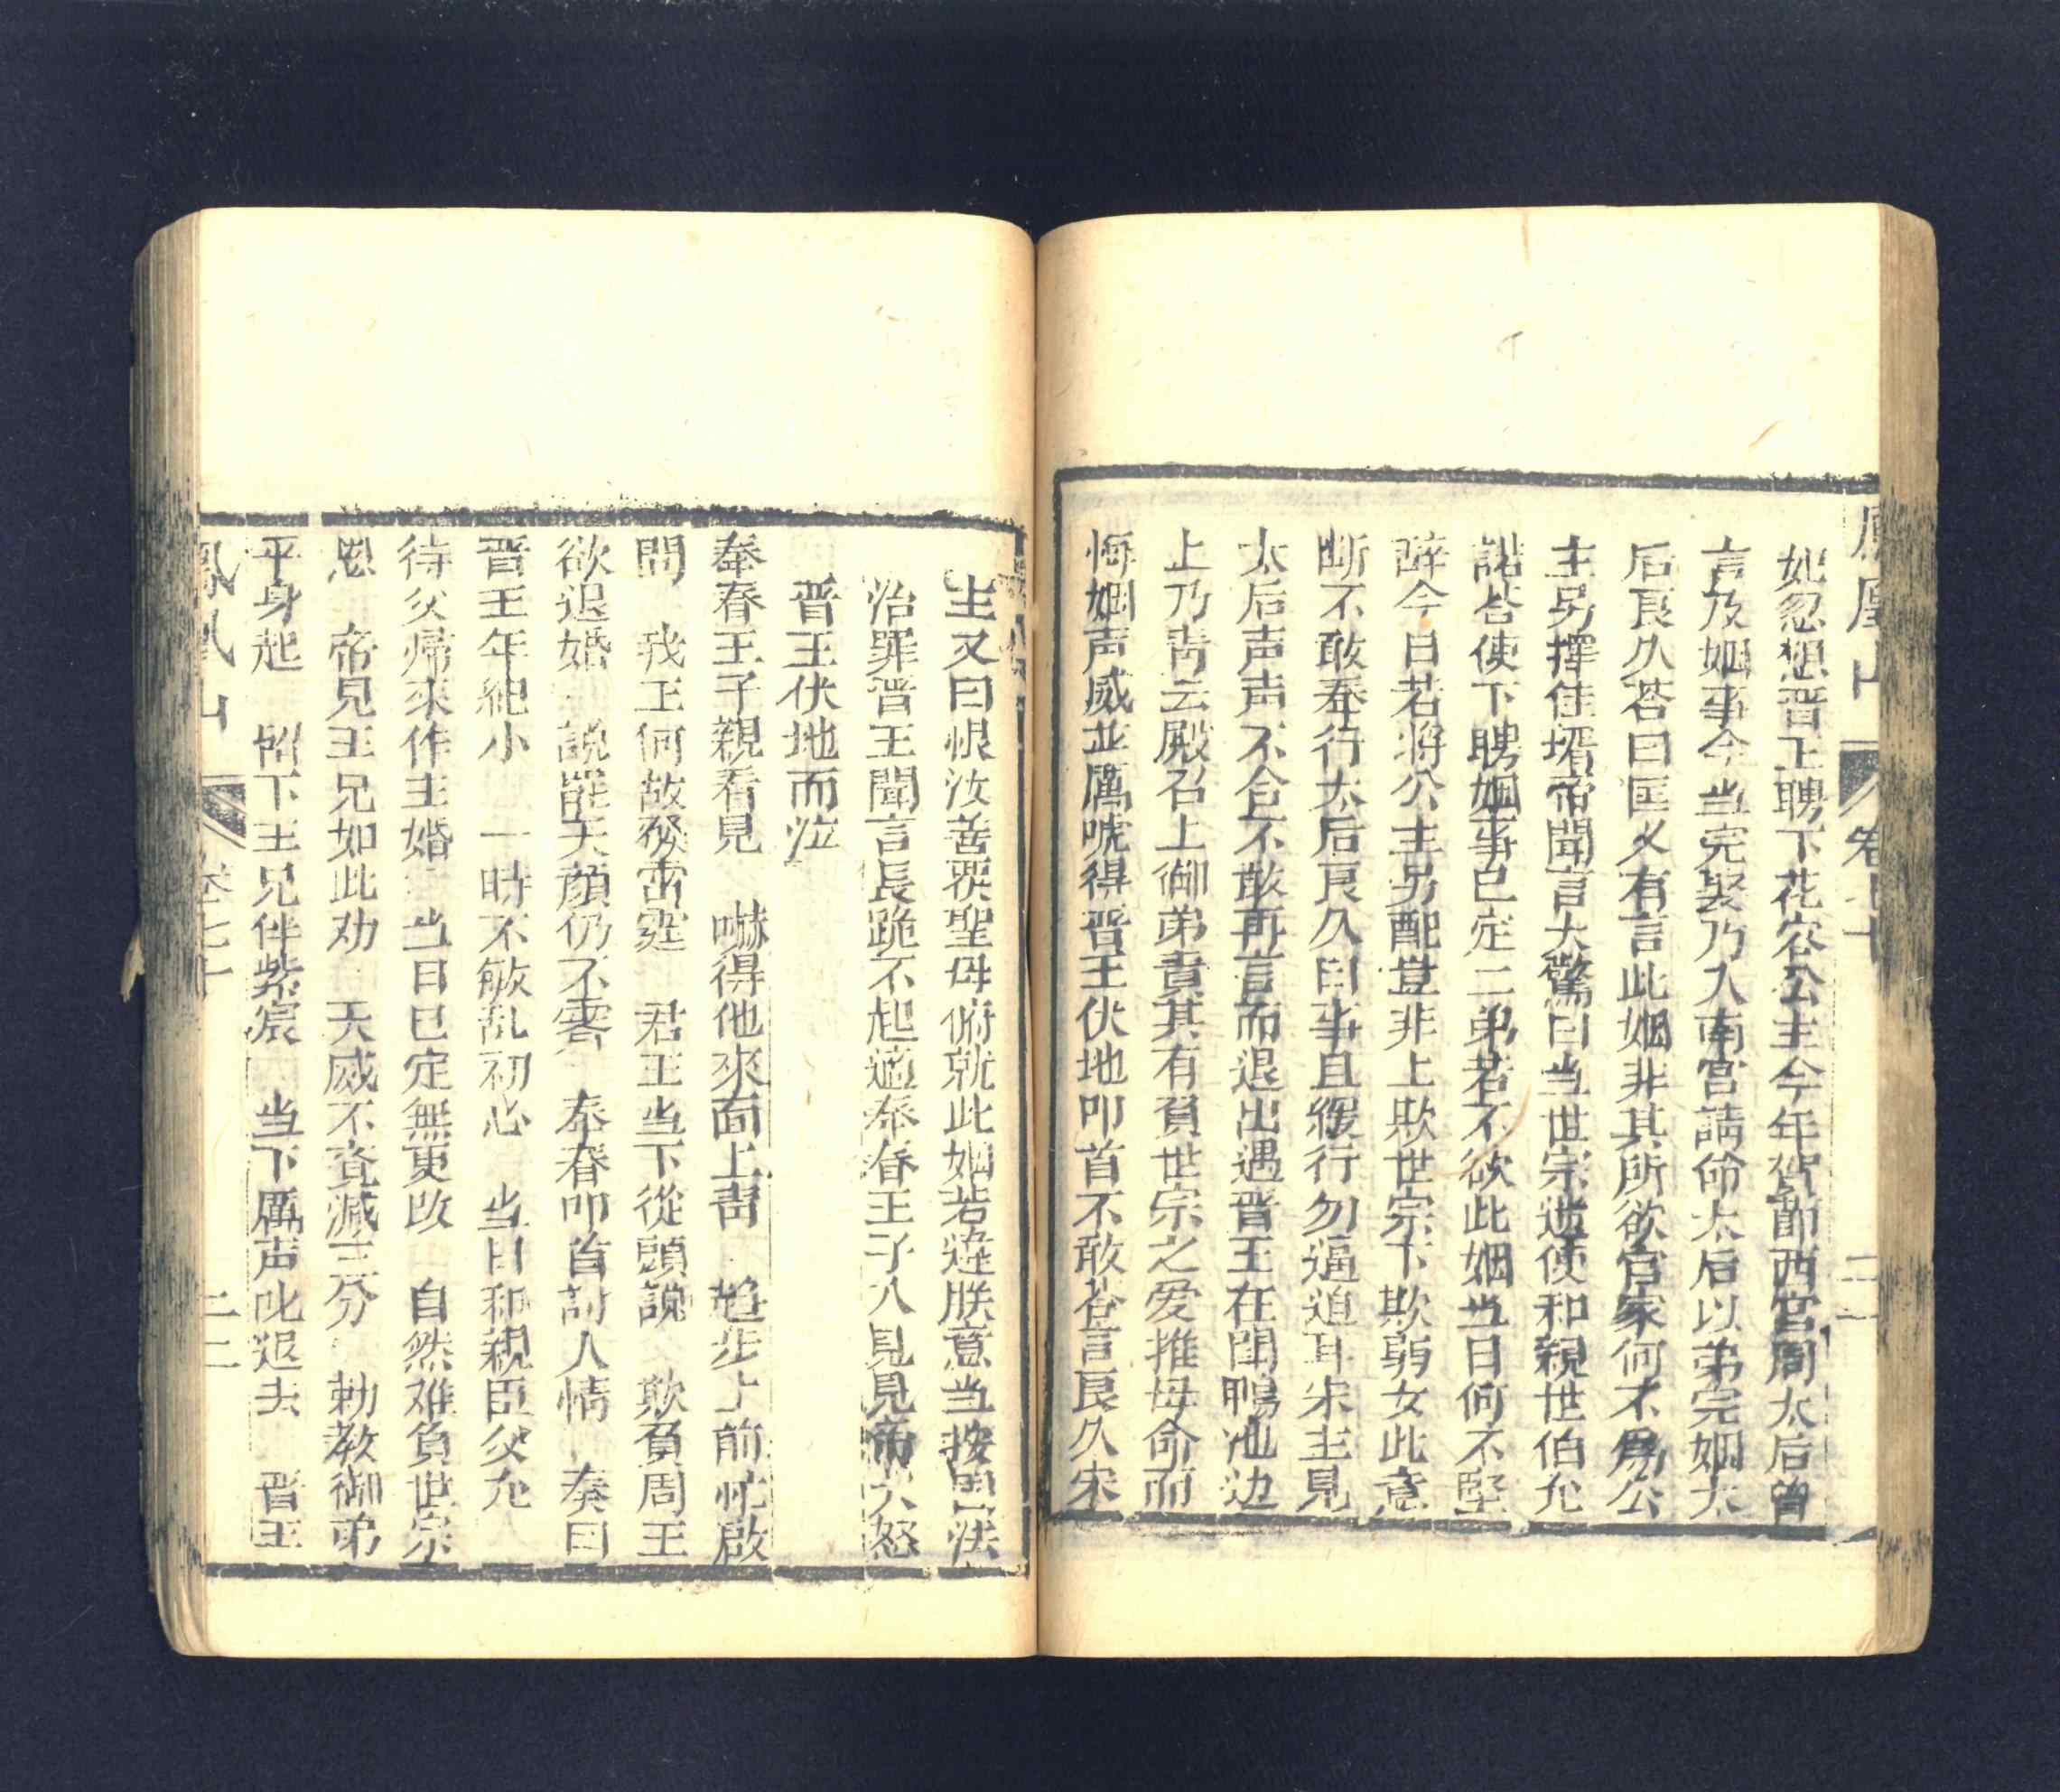 鳳凰山 卷七十 二
如忽想晋王聘下花容公主今年賀節西宮周太后曾
言及姻事今当完娶乃入南宮請命太后以弟完姻太
后良久答曰匡义有言此姻非其所欲官家何不爲公
主另擇佳壻帝聞言大驚曰当世宗遣使和親世伯允
諾答使下聘姻事已定二弟若不欲此姻当日何不堅
辞今日若将公主另配豈非上欺世宗下欺弱女此意
断不敢奉行太后良久曰事且緩行勿逼迫耳宋主見
太后声声不合不敢再言而退出遇晋王在閗鴨池边
上乃青云殿召上御弟責其有負世宗之爱推母命而
悔姻声威並厲唬得晋王伏地叩首不敢答言良久宋
主又曰恨汝善要聖母俯就此姻若違朕意当按国法
治罪晋王聞言長跪不起適秦春王子入見見帝大怒
晋王伏地而泣
秦春王子親看見 嚇得他來面上青 趋步上前忙啟
問 我王何故發雷霆 君王当下從頭說 欺負周王
欲退婚 說罷天顔仍不霽 秦春叩首討人情 奏曰
晋王年紀小 一時不敏乱初心 当日和親臣父允
待父帰來作主婚 当日已定無更改 自然难負世宗
恩 帝見王兄如此劝 天威不竟减三分 勅教御弟
平身起 留下王兄伴紫宸 当下厲声叱退去 晋王
鳳凰山 卷七十 二